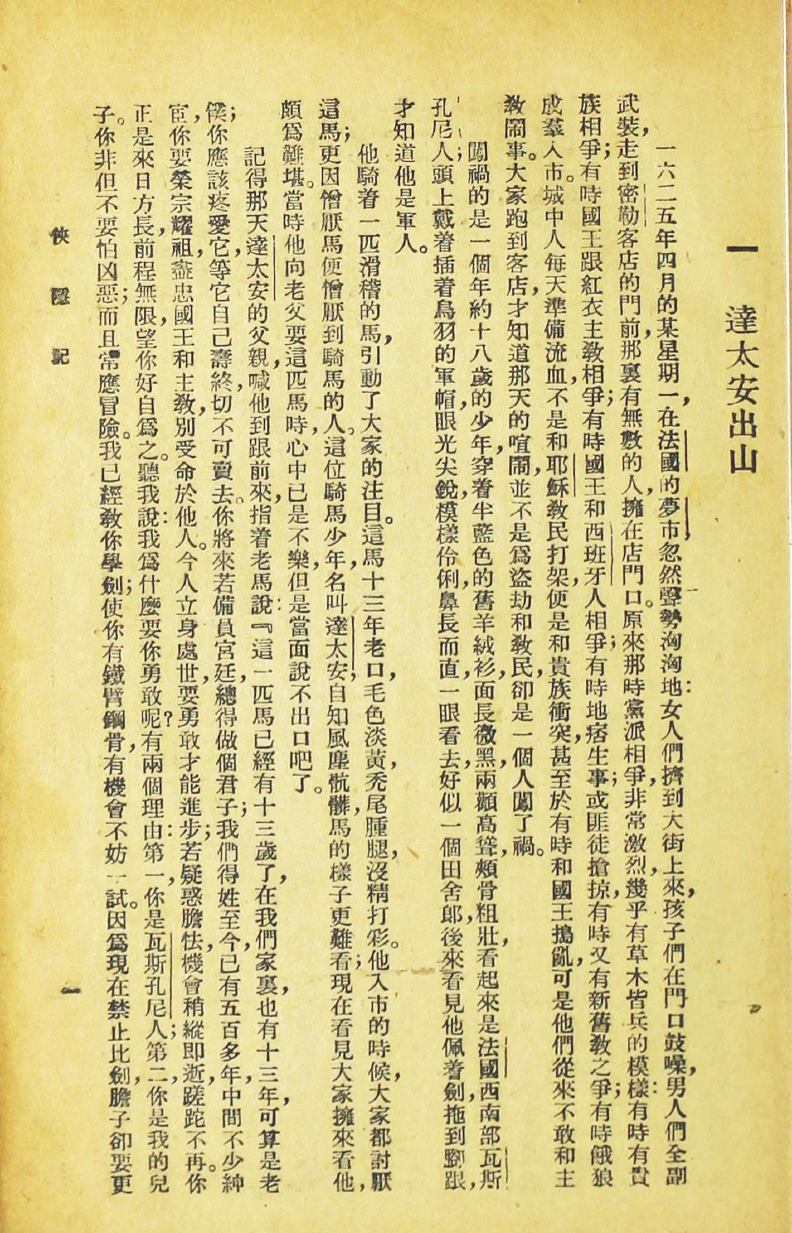 一　達太安出山
一六二五年四月的某星期一，在法國的夢市，忽然聲勢洶洶地：女人們擠到大街上來，孩子們在門口鼓噪，男人們全副
武裝，走到密勒客店的門前，那裏有無數的人，擁在店門口。原來那時黨派相爭，非常激烈，幾乎有草木皆兵的模樣：有時有貴
族相爭；有時國王跟紅衣主教相爭；有時國王和西班牙人相爭；有時地痞生事；或匪徒搶掠，有時又有新舊教之爭；有時餓狼
成羣入市。城中人每天準備流血，不是和耶穌教民打架，便是和貴族衝突，甚至於有時和國王搗亂，可是他們從來不敢和主
教鬧事。大家跑到客店，才知道那天的喧鬧，並不是爲盜劫和教民，卻是一個人闖了禍。
闖禍的是一個年約十八歲的少年，穿着半藍色的舊羊絨衫，面長微黑，兩顴高聳，頰骨粗壯，看起來是法國西南部瓦斯
孔尼人；頭上戴着插着鳥羽的軍帽，眼光尖銳，模樣伶俐，鼻長而直，一眼看去，好似一個田舍郎，後來看見他佩着劍，拖到腳跟，
才知道他是軍人。
他騎着一匹滑稽的馬，引動了大家的注目。這馬十三年老口，毛色淡黃，禿尾腫腿，沒精打彩。他入市的時候，大家都討厭
這馬；更因憎厭馬便憎厭到騎馬的人。這位騎馬少年，名叫達太安，自知風塵骯髒，馬的樣子更難看；現在看見大家擁來看他，
頗爲難堪。當時他向老父要這匹馬時，心中已是不樂，但是當面說不出口吧了。
記得那天達太安的父親，喊他到跟前來，指着老馬說：『這一匹馬已經有十三歲了，在我們家裏，也有十三年，可算是老
僕；你應該疼愛它，等它自己壽終，切不可賣去。你將來若備員宮廷，總得做個君子；我們得姓至今，已有五百多年，中間不少紳
宦，你要榮宗耀祖，盡忠國王和主教，別受命於他人。今人立身處世，要勇敢才能進步；若疑惑膽怯，機會稍縱即逝，蹉跎不再。你
正是來日方長，前程無限，望你好自爲之。聽我說：我爲什麼要你勇敢呢？有兩個理由：第一，你是瓦斯孔尼人；第二，你是我的兒
子。你非但不要怕凶惡；而且常應冒險。我已經教你學劍；使你有鐵臂鋼骨，有機會不妨一試。因爲現在禁止比劍，膽子卻要更
俠隱記
一